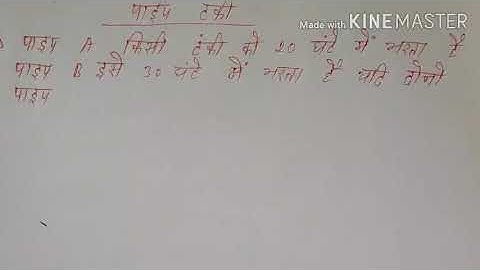 पाइप टंकी
Made with KINEMASTER
पाइप A किसी टंकी को 20 घंटे में भरता है
पाइप B इसे 30 घंटे में भरता है यदि दोनो
पाइप